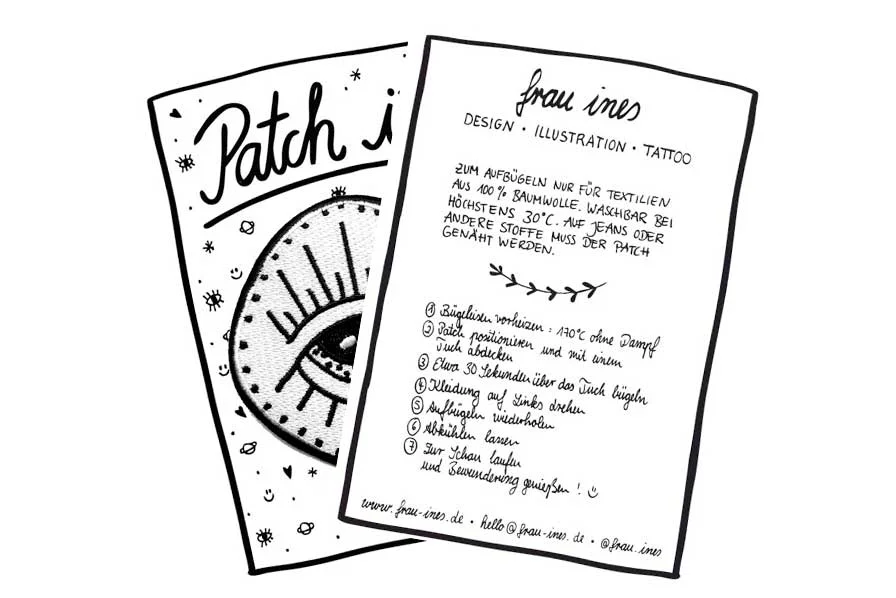 Patch i
frau ines
DESIGN · ILLUSTRATION · TATTOO
ZUM AUFBÜGELN NUR FÜR TEXTILIEN
AUS 100 % BAUMWOLLE. WASCHBAR BEI
HÖCHSTENS 30°C. AUF JEANS ODER
ANDERE STOFFE MUSS DER PATCH
GENÄHT WERDEN.
① Bügeleisen vorheizen : 170°C ohne Dampf
② Patch positionieren und mit einem
Tuch abdecken
③ Etwa 30 Sekunden über das Tuch bügeln
④ Kleidung auf Links drehen
⑤ Aufbügeln wiederholen
⑥ Abkühlen lassen
⑦ Zur Schau laufen
und Bewunderung genießen ! ☺
www.frau-ines.de · hello@frau-ines.de · @frau.ines